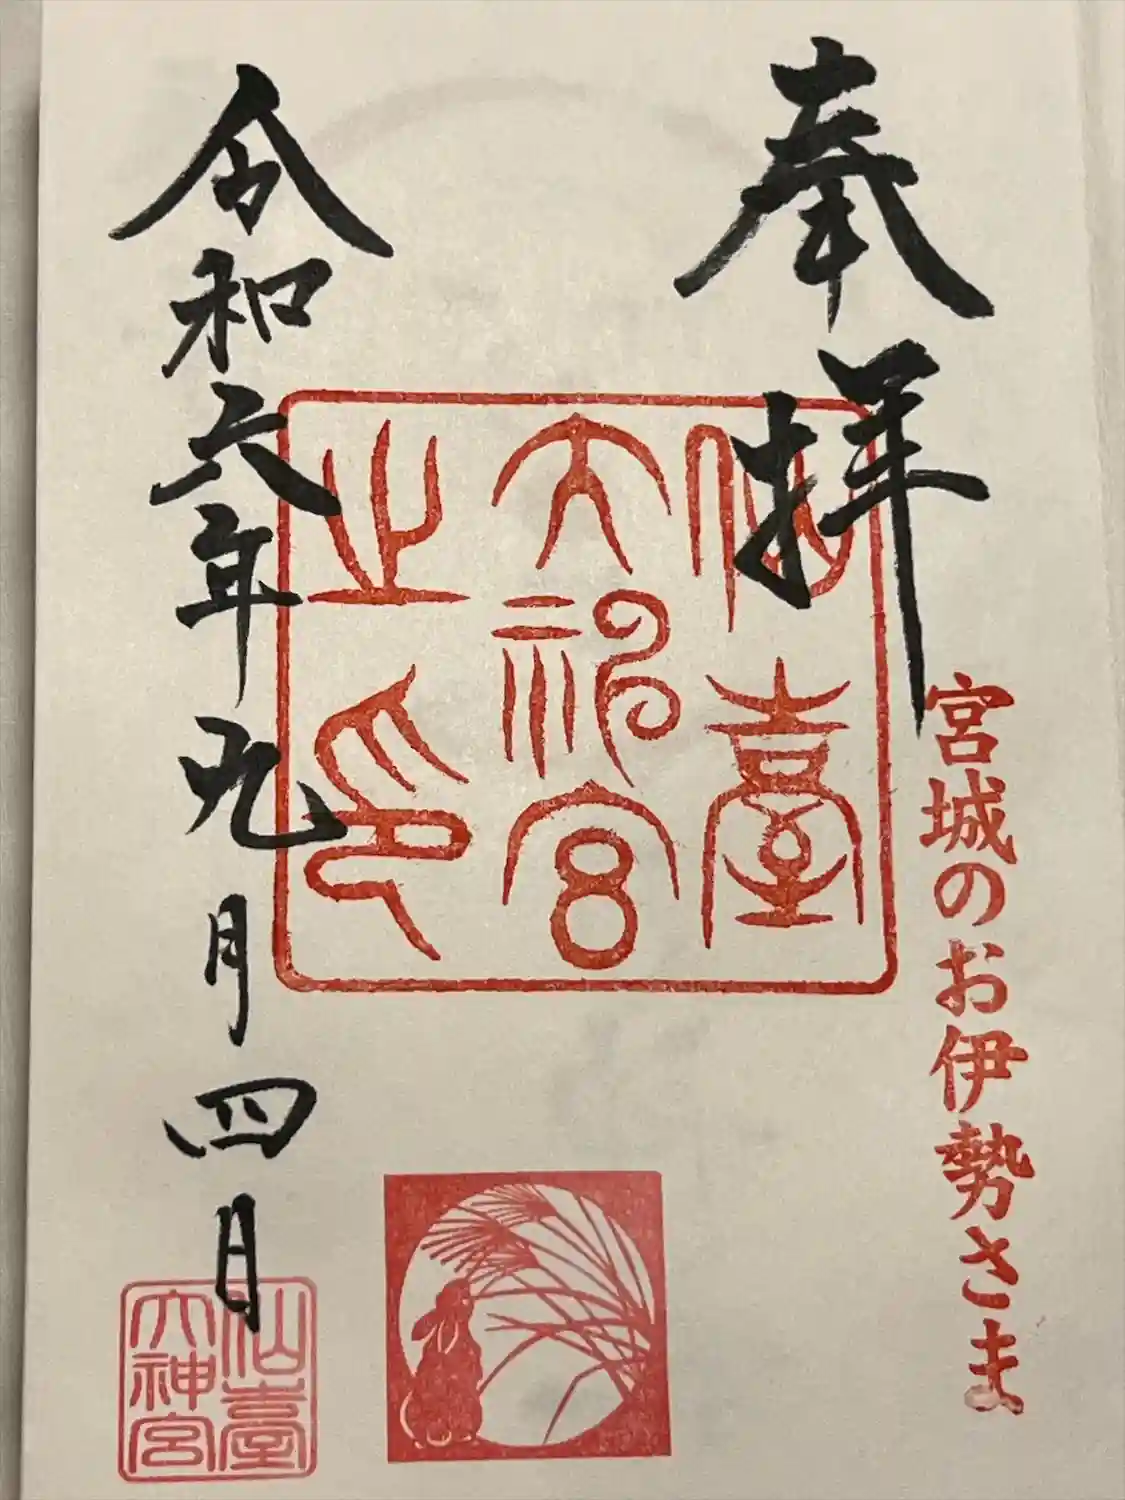 奉拝
宮城のお伊勢さま
仙臺
大神宮
之印
令和六年九月四日
仙臺
大神宮